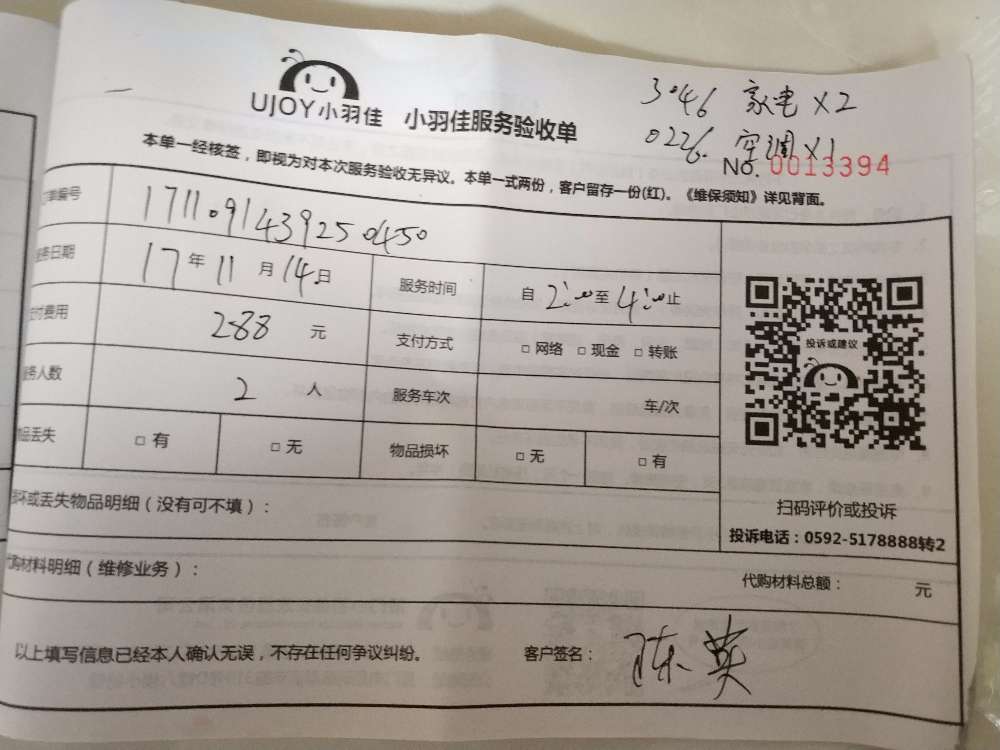 UJOY小羽佳 小羽佳服务验收单
3046 家电 X2
0226. 空调 X1
No. 0013394
本单一经核签，即视为对本次服务验收无异议。本单一式两份，客户留存一份(红)。《维保须知》详见背面。
单编号 1711091439250450
务日期 17年11月14日 服务时间 自2:00至4:00止
付费用 288 元 支付方式 □ 网络 □ 现金 □ 转账
务人数 2 人 服务车次 车/次
品丢失 □ 有 □ 无 物品损坏 □ 无 □ 有
投诉或建议
扫码评价或投诉
投诉电话：0592-5178888转2
坏或丢失物品明细（没有可不填）：
代购材料明细（维修业务）： 代购材料总额： 元
以上填写信息已经本人确认无误，不存在任何争议纠纷。 客户签名： 陈英